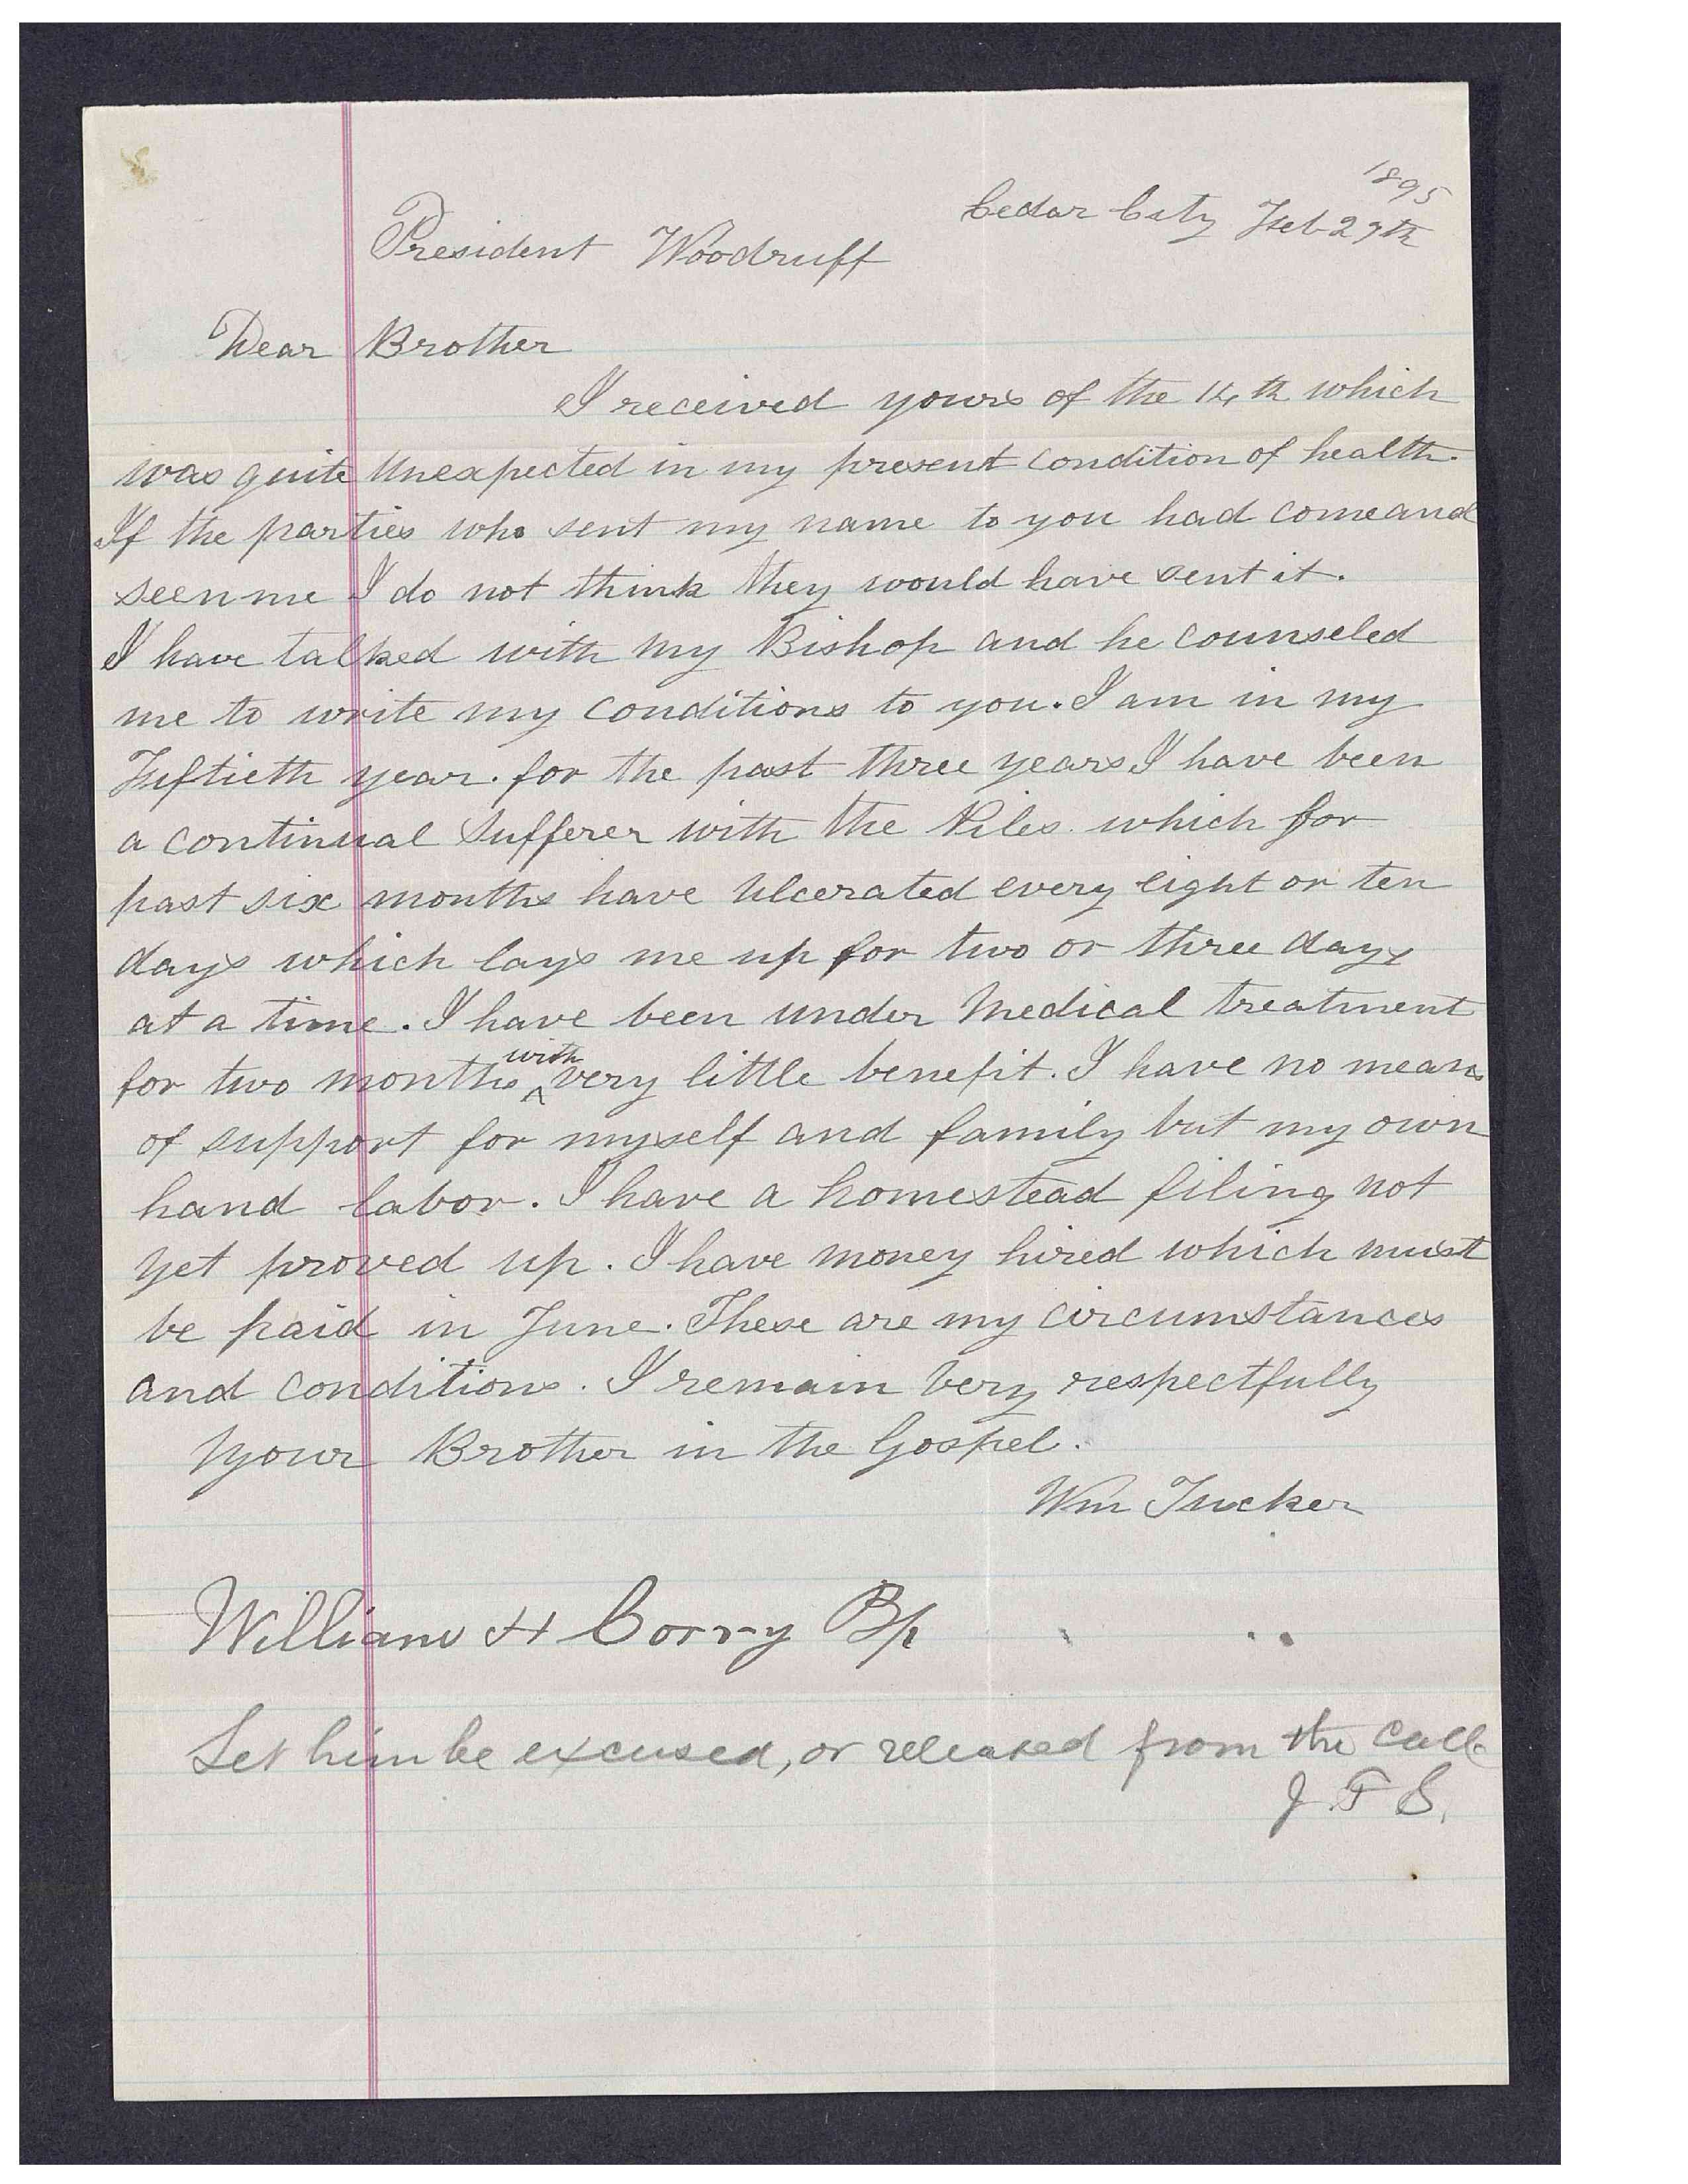 1895
Cedar City Feb 27th
President Woodruff
Dear Brother
I received yours of the 14th which
was quite Unexpected in my present condition of health.
If the parties who sent my name to you had come and
seen me I do not think they would have sent it.
I have talked with my Bishop and he counseled
me to write my conditions to you. I am in my
Fiftieth year. for the past three years I have been
a continual Sufferer with the Piles. which for
past six months have Ulcerated every eight or ten
days which lays me up for two or three days
at a time. I have been under Medical treatment
for two months with very little benefit. I have no means
of support for myself and family but my own
hand labor. I have a homestead filing not
yet proved up. I have money hired which must
be paid in June. These are my circumstances
and conditions. I remain Very respectfully
Your Brother in the Gospel.
Wm Tucker
William H Corry Bp
Let him be excused, or released from the call.
J. F. S.